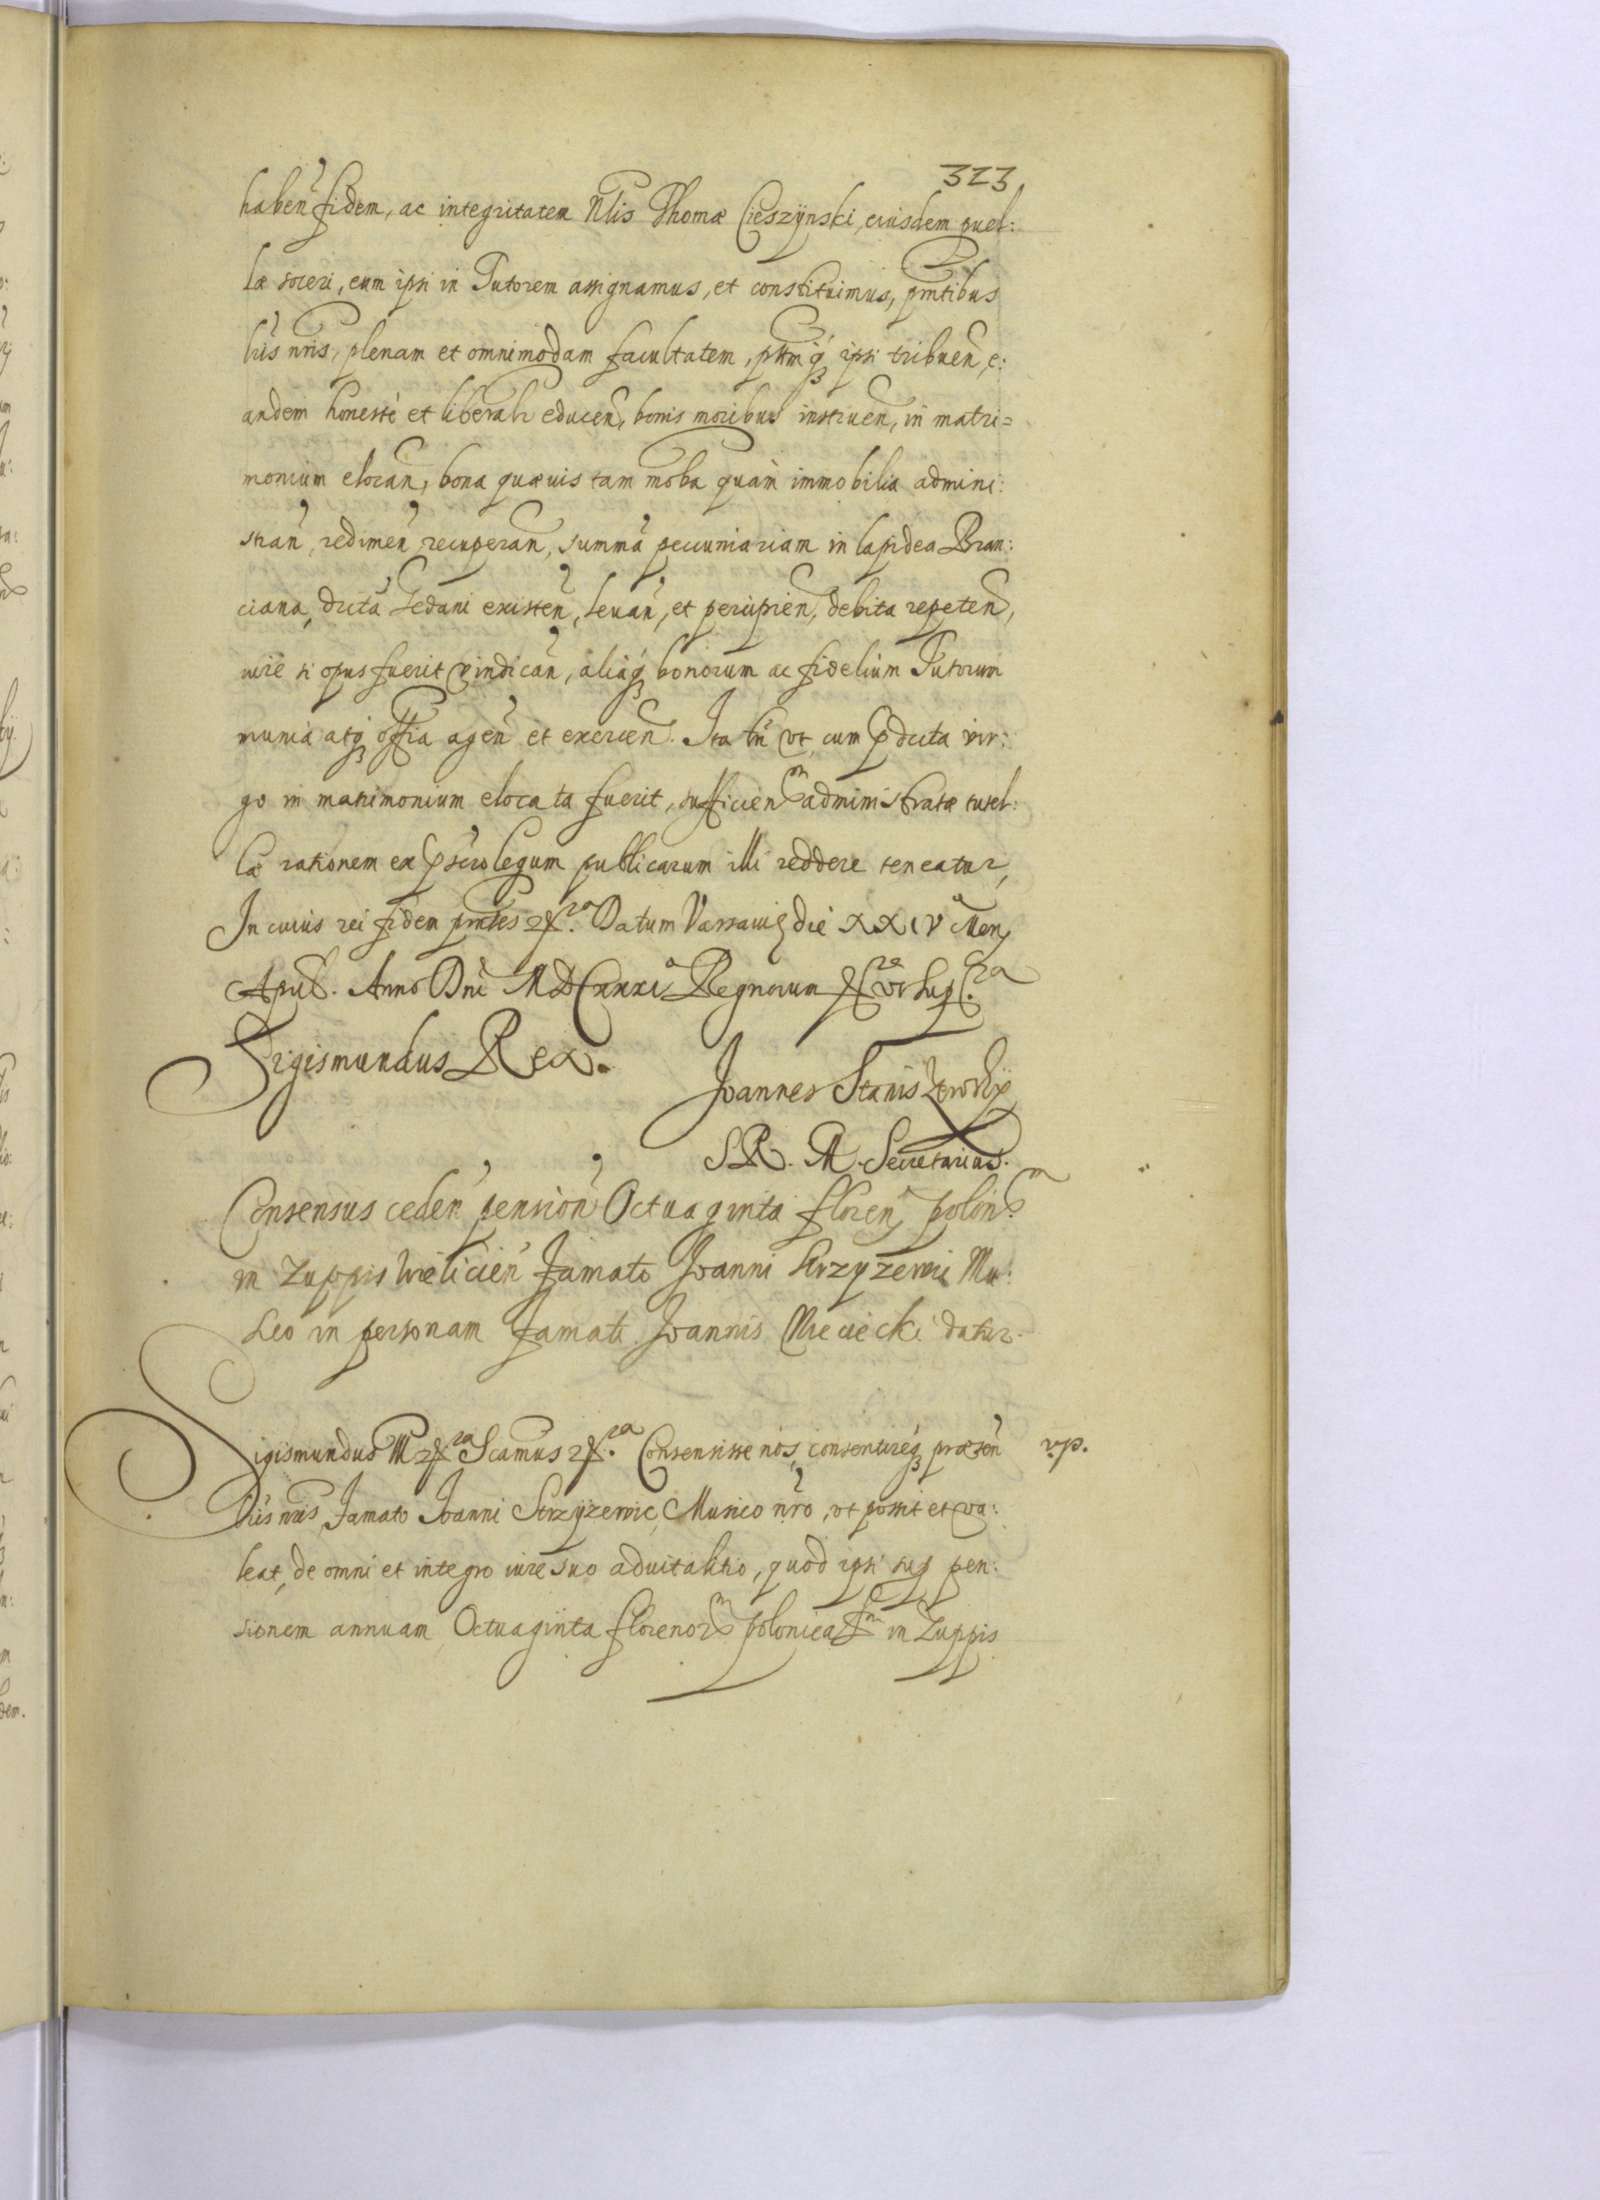 323
habeñ fidem, ac integritatem Nlis Thomæ Cieszÿnski, eiusdem puel:
læ soceri, eum ipsi in Tutorem assignamus, et constituimus, pñtibus
lr̃is nr̃is, plenam et omnimodam facultatem, ptt̃mq́ꝫ ipsi tribueñ, e:
andem honestè et liberalr educeñ, bonis moribus instrueñ, in matri=
monium elocañ, bona quæuis tam mob̃a quàm immobilia admini:
strañ, redimeñ, recuperañ, summã pecuniariam in lapidea Bran:
ciana, dictã Gedani existeñ, leuañ, et percipieñ, debita repeteñ,
iure si opus fuerit vindicañ, aliaq́ꝫ bonorum ac fidelium Tutorum
munia atqꝫ offi̅a ageñ et exerceñ. Ita tñ vt cum p̱dicta vir:
go in matrimonium elocata fuerit, sufficienᵐ administratæ tutel:
læ rationem ex p̱scr̃o legum publicarum illi reddere teneatur,
In cuius rei fidem pñtes &ᶜʳᵃ. Datum Varsauię die XXIV Menſ
April. Anno Dnĩ MDCXXXIº Regnorum &ᶜʳᵃ vt supᶜʳᵃ
Sigismundus Rex.
Joannes Stanis
S R. M. Secretarius.
Consensus cedeñ pensioñ Octuaginta floreñ poloñᵐ
in Zuppis Wielicieñ Famato Joanni Strzyzewic Mu:
sico in personam Famati Joannis datur.
Sigismundus III &ᶜʳᵃ Sc̃amus &ᶜʳᵃ. Consensisse nos, consentireq́ꝫ præseñ
v.p.
lr̃is nr̃is Famato Joanni Strzÿzewic, Musico nr̃o, vt possit et va:
leat, de omni et integro iure suo aduitalitio, quod ipsi sup pen:
sionem annuam Octuaginta florenorᵐ polonicalᵐ in Zuppis